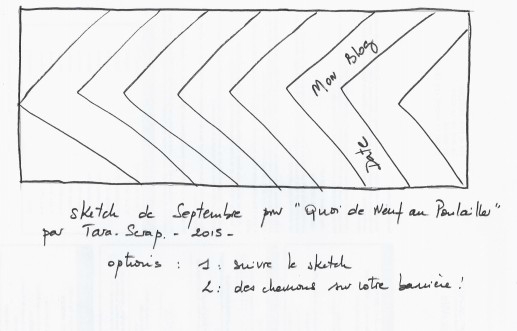 Mon Blog
Date
sketch de Septembre pour "Quoi de Neuf au Poulailler"
par Tara. Scrap. - 2015 -
options : 1 : suivre le sketch
2 : des chevrons sur votre bannière !